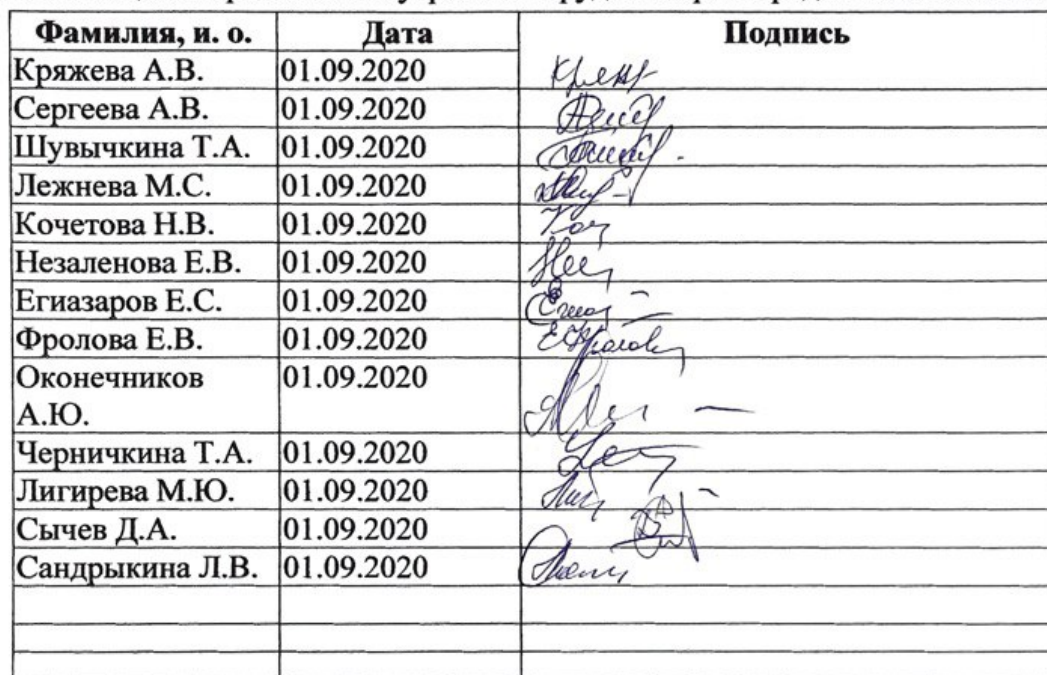 Фамилия, и. о. Дата Подпись
Кряжева А.В. 01.09.2020
Сергеева А.В. 01.09.2020
Шувычкина Т.А. 01.09.2020
Лежнева М.С. 01.09.2020
Кочетова Н.В. 01.09.2020
Незаленова Е.В. 01.09.2020
Егиазаров Е.С. 01.09.2020
Фролова Е.В. 01.09.2020 ЕФролова
Оконечников 01.09.2020
А.Ю.
Черничкина Т.А. 01.09.2020
Лигирева М.Ю. 01.09.2020
Сычев Д.А. 01.09.2020
Сандрыкина Л.В. 01.09.2020